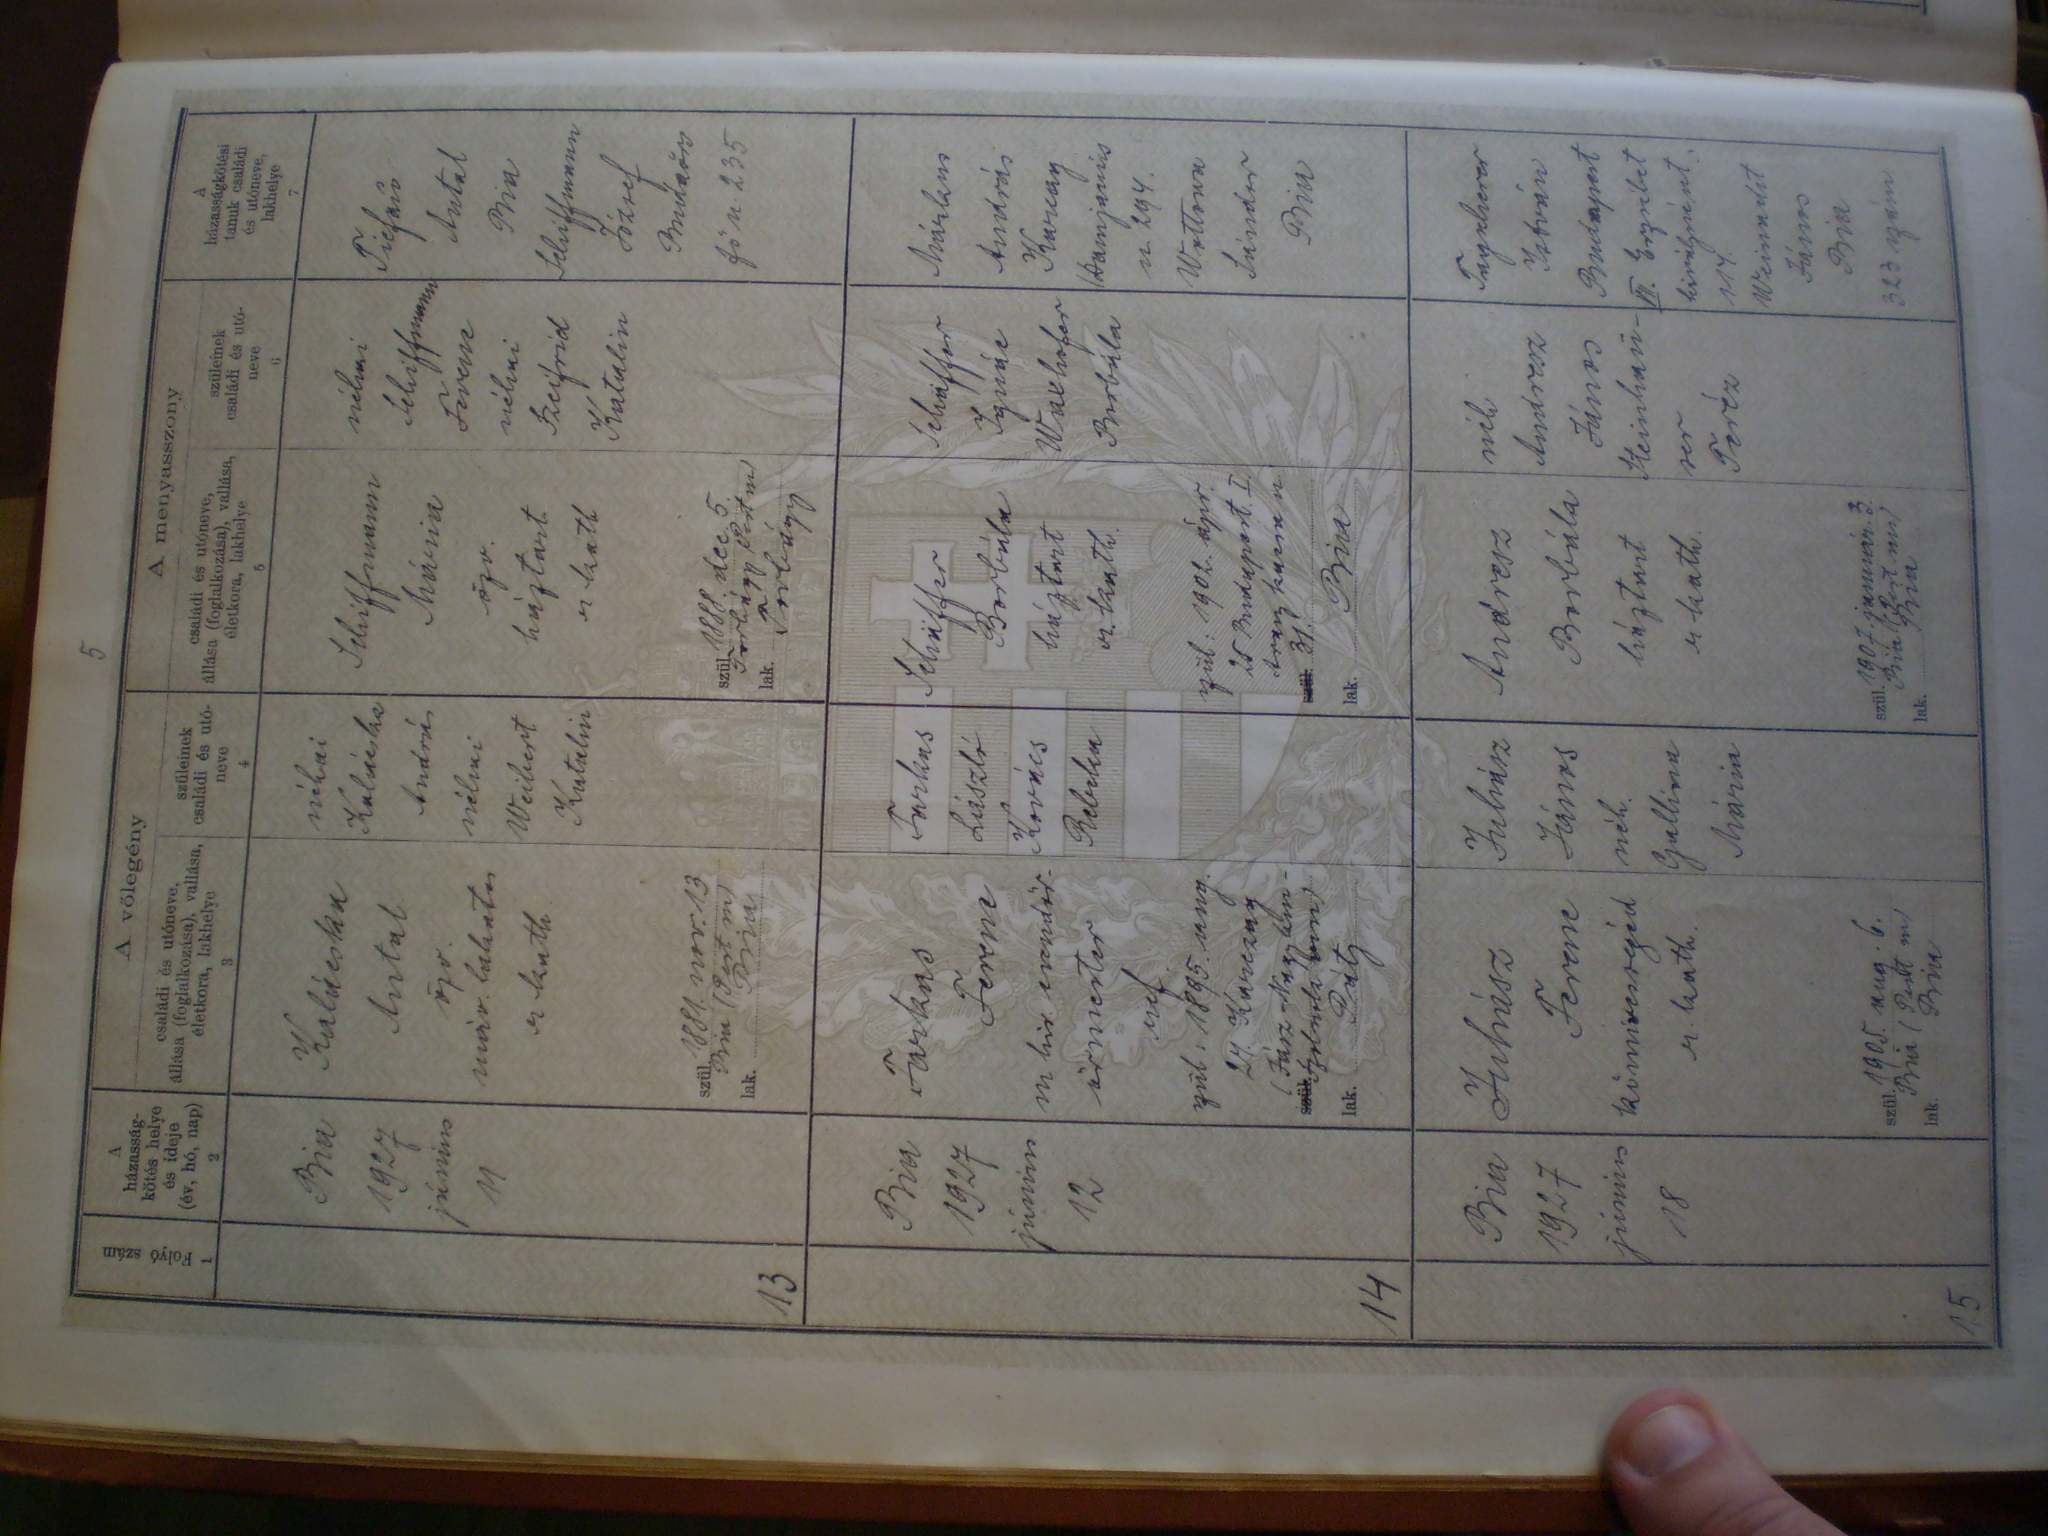 5
A vőlegény
A menyasszony
Folyó szám
1
A
házasság-
kötés helye
és ideje
(év, hó, nap)
2
családi és utóneve,
állása (foglalkozása), vallása,
életkora, lakhelye
3
szüleinek
családi és utó-
neve
4
családi és utóneve,
állása (foglalkozása), vallása,
életkora, lakhelye
5
szüleinek
családi és utó-
neve
6
A
házasságkötési
tanuk családi
és utóneve,
lakhelye
7
13
Bia
1927
június
11
Kalácska
Antal
özv.
r kath
szül. 1881. nov. 13
Bia (Pest m)
lak. Bia
néhai
Kalácska
András
néhai
Weibert
Katalin
Schiffmann
Mária
özv.
háztart.
r kath
szül. 1888 dec 5.
Torbágy Pest m
lak. Torbágy
néhai
Schiffmann
Ferenc
néhai
Szeifrid
Katalin
Antal
Bia
Schiffmann
József
Budaörs
fő u. 235
14
Bia
1927
június
12
Farkas
Ferenc
m kir. csendőr-
őrmester
ref.
szül: 1895. aug.
27. Karczag
(Jász-Nagykun-
szül. Szolnok vm)
lak. Páty
Farkas
László
Kovács
Rebeka
Schäffer
Borbála
háztart
r. kath.
szül: 1902. ápr.
25 Budapest. I.
Arany kacsa u
szül. 31.
lak. Bia
Schäffer
Ignác
Waclhofer
Borbála
András
Karcag
Damjanich
u 294.
Sándor
Bia
15
Bia
1927
június
18
Juhász
Ferenc
kőművessegéd
r. kath.
szül. 1905. aug. 6.
Bia (Pest m)
lak. Bia
Juhász
János
néh.
Gallina
Mária
Andresz
Borbála
háztart
r kath.
szül. 1907. január. 3.
Bia (Pest m)
lak. Bia
néh
Andresz
János
Steinhau-
ser
Teréz
István
Budapest
VII. Erzsébet
királyné út.
114.
János
Bia
323 szám